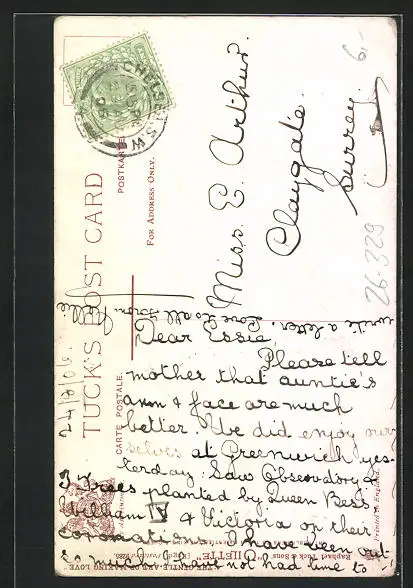 TUCK'S POST CARD
CARTE POSTALE.
POSTKARTE
FOR ADDRESS ONLY.
CHELSEA S.W.
Miss. E. Arthur.
Claygate.
Surrey.
6,-
26-329
24/8/06.
Dear Essie,
Please tell
mother that auntie's
arm & face are much
better. We did enjoy our
selves at Greenwich yes-
terday. Saw Observatory &
trees planted by Queen Bess
William IV & Victoria on their
coronation. I have been out
so much, have not had time to
write a letter. Love to all. from
Raphael Tuck & Sons
Printed in England.
"THE GENTLE ART OF MAKING LOVE."